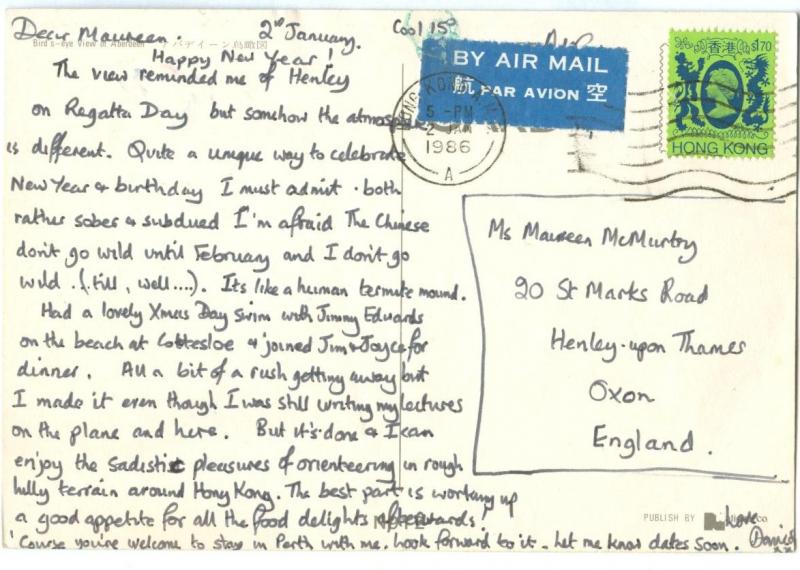 Dear Maureen. 2nd January. Cool 15°
Bird's-eye View of Aberdeen アバディーン鳥瞰図
Happy New Year!
The view reminded me of Henley
on Regatta Day but somehow the atmosphere
is different. Quite a unique way to celebrate
New Year & birthday I must admit - both
rather sober & subdued I'm afraid The Chinese
don't go wild until February and I don't go
wild. (till, well....). Its like a human termite mound.
Had a lovely Xmas Day swim with Jimmy Edwards
on the beach at Cottesloe & joined Jim & Joyce for
dinner. All a bit of a rush getting away but
I made it even though I was still writing my lectures
on the plane and here. But it's done & I can
enjoy the sadistic pleasures of orienteering in rough
hilly terrain around Hong Kong. The best part is working up
a good appetite for all the food delights afterwards!
'Course you're welcome to stay in Perth with me. Look forward to it. Let me know dates soon.
Love
BY AIR MAIL
航 PAR AVION 空
HONG KONG
5 -PM
2 JAN
1986
A
香港 $1.70
HONG KONG
Ms Maureen McMurtry
20 St Marks Road
Henley-upon Thames
Oxon
England.
PUBLISH BY